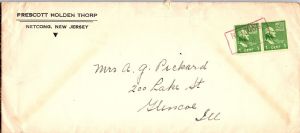 PRESCOTT HOLDEN THORP
NETCONG, NEW JERSEY
Mrs A. G. Pickard
200 Lake St
Glencoe
Ill
1 CENT 1
1 CENT 1